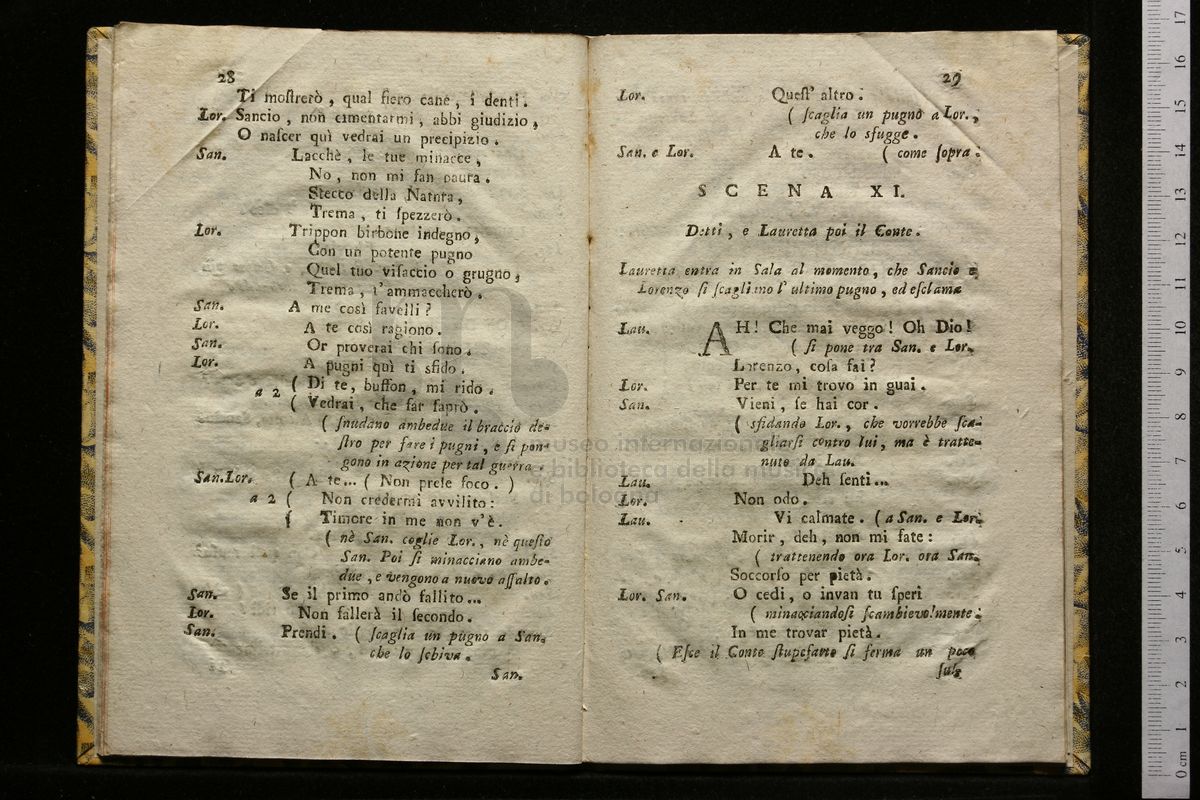 28
Ti moſtrerò , qual fiero cane , i denti.
Lor. Sancio , non cimentarmi , abbi giudizio ,
O naſcer quì vedrai un precipizio .
San. Lacchè , le tue minacce ,
No , non mi fan paura .
Stecco della Natura ,
Trema , ti ſpezzerò .
Lor. Trippon birbone indegno ,
Con un potente pugno
Quel tuo viſaccio o grugno ,
Trema , t'ammaccherò .
San. A me così favelli ?
Lor. A te così ragiono .
San. Or proverai chi ſono .
Lor. A pugni quì ti sfido .
a 2 ( Di te, buffon , mi rido .
( Vedrai , che far ſaprò .
( ſnudano ambedue il braccio de-
ſtro per fare i pugni , e ſi pon-
gono in azione per tal guerra .
San.Lor. ( A te... ( Non preſe foco . )
a 2 ( Non credermi avvilito :
( Timore in me non v'è .
( nè San. coglie Lor., nè queſto
San. Poi ſi minacciano ambe-
due , e vengono a nuovo aſſalto .
San. Se il primo andò fallito ...
Lor. Non fallerà il ſecondo .
San. Prendi . ( ſcaglia un pugno a San.
che lo ſchiva .
San.
29
Lor. Queſt' altro :
( ſcaglia un pugno a Lor.,
che lo sfugge .
San. e Lor. A te . ( come ſopra :
SCENA XI.
Detti , e Lauretta poi il Conte .
Lauretta entra in Sala al momento , che Sancio e
Lorenzo ſi ſcagliano l' ultimo pugno , ed eſclama
Lau. AH! Che mai veggo! Oh Dio!
( ſi pone tra San. e Lor.
Lorenzo, coſa fai ?
Lor. Per te mi trovo in guai .
San. Vieni , ſe hai cor .
( sfidando Lor. , che vorrebbe ſca-
gliarſi contro lui, ma è tratte-
nuto da Lau.
Lau. Deh ſenti ...
Lor. Non odo .
Lau. Vi calmate . ( a San. e Lor.
Morir , deh , non mi fate :
( trattenendo ora Lor. ora San.
Soccorſo per pietà .
Lor. San. O cedi , o invan tu ſperi
( minacciandoſi ſcambievolmente :
In me trovar pietà .
( Eſce il Conte ſtupefatto ſi ferma un poco
ſul
museo internazionale
e biblioteca della musica
di bologna